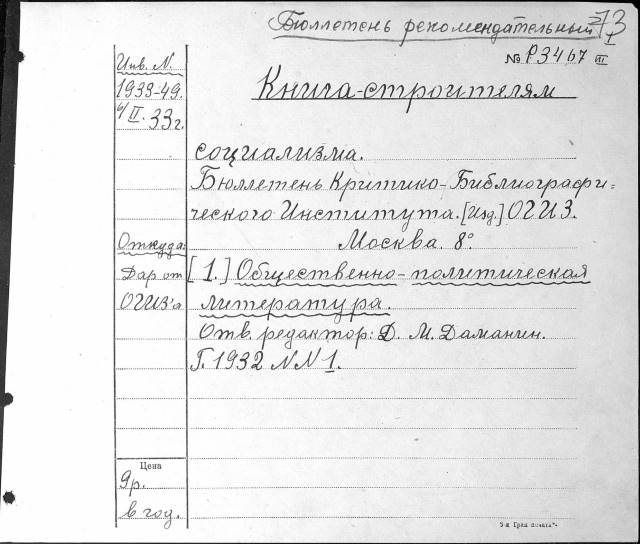 Бюллетень рекомендательный 73
I
№ Р3467 III
Инв. N.
1933-49.
6/II. 33 г.
Книга-строителям
социализма.
Бюллетень Критико-Библиографи=
ческого Института. [Изд.] ОГИЗ.
Москва. 8°.
Откуда:
Дар от
ОГИЗ'а
[1.] Общественно-политическая
литература.
Отв. редактор: Д. М. Даманин.
Г. 1932 NN 1.
Цена
9р.
в год.